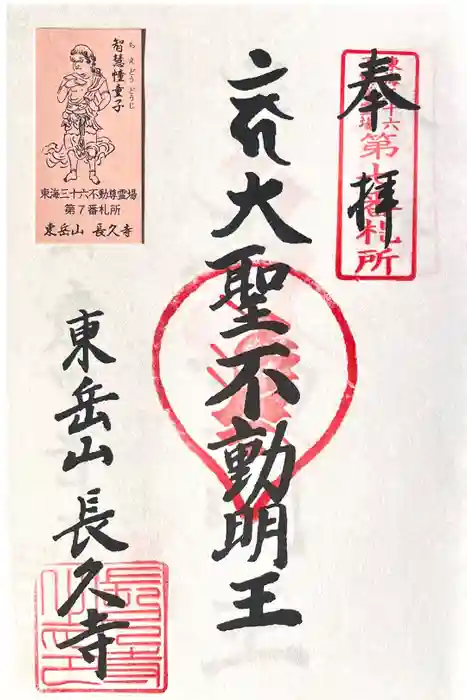 奉拝
第七番札所
大聖不動明王
東岳山 長久寺
智慧幢童子
ちえどうどうじ
東海三十六不動尊霊場
第7番札所
東岳山 長久寺